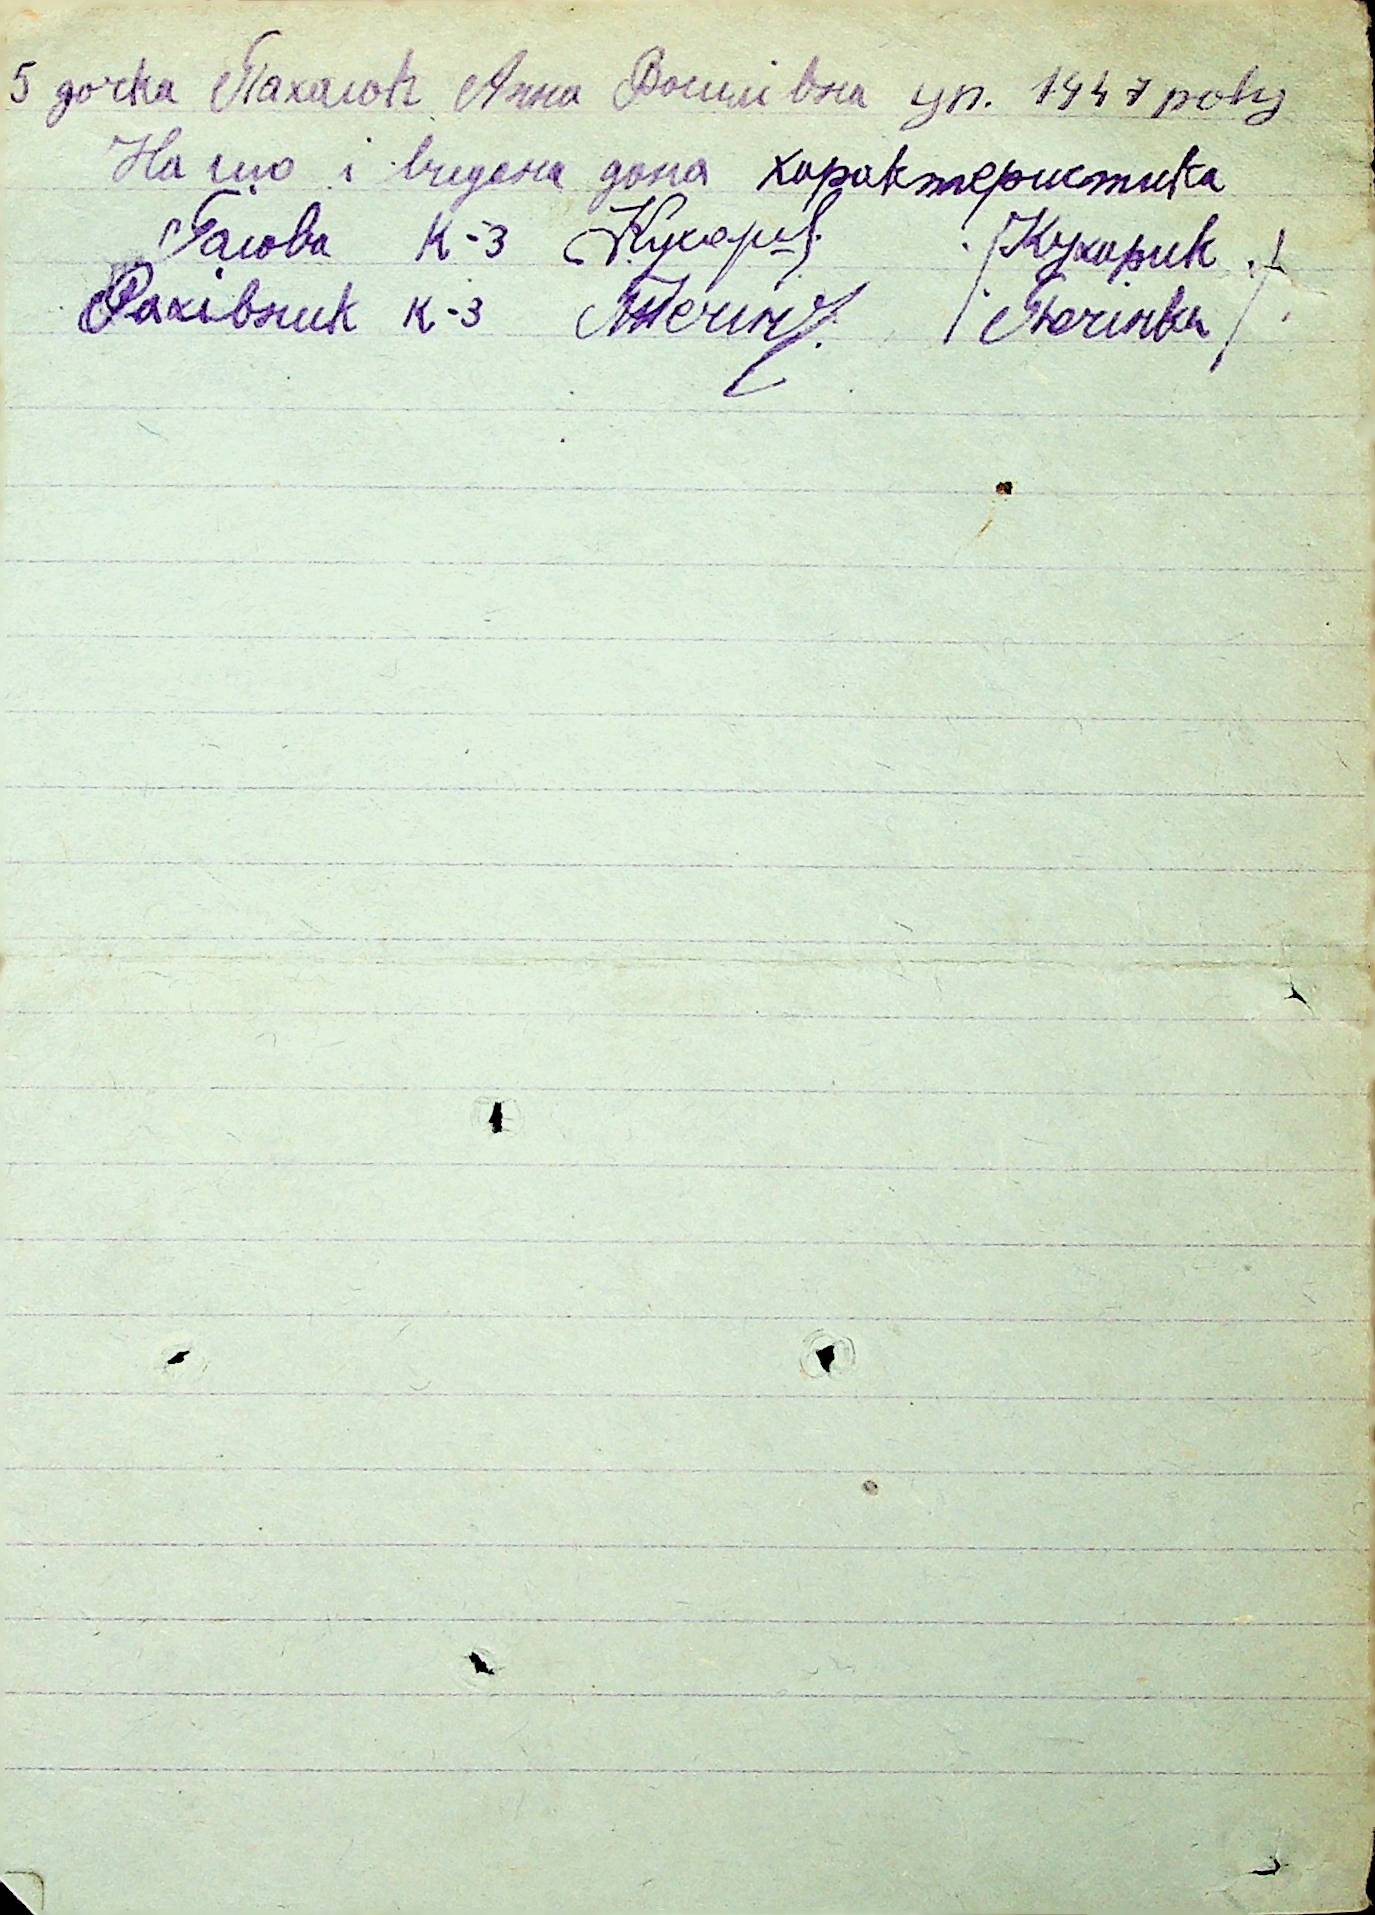 5 дочка Пахолок Анна Василівна ур. 1947 року
На що і видена дана характеристика
Голова к-з Кухарик /Кухарик/
Рахівник к-з /Тючінка/